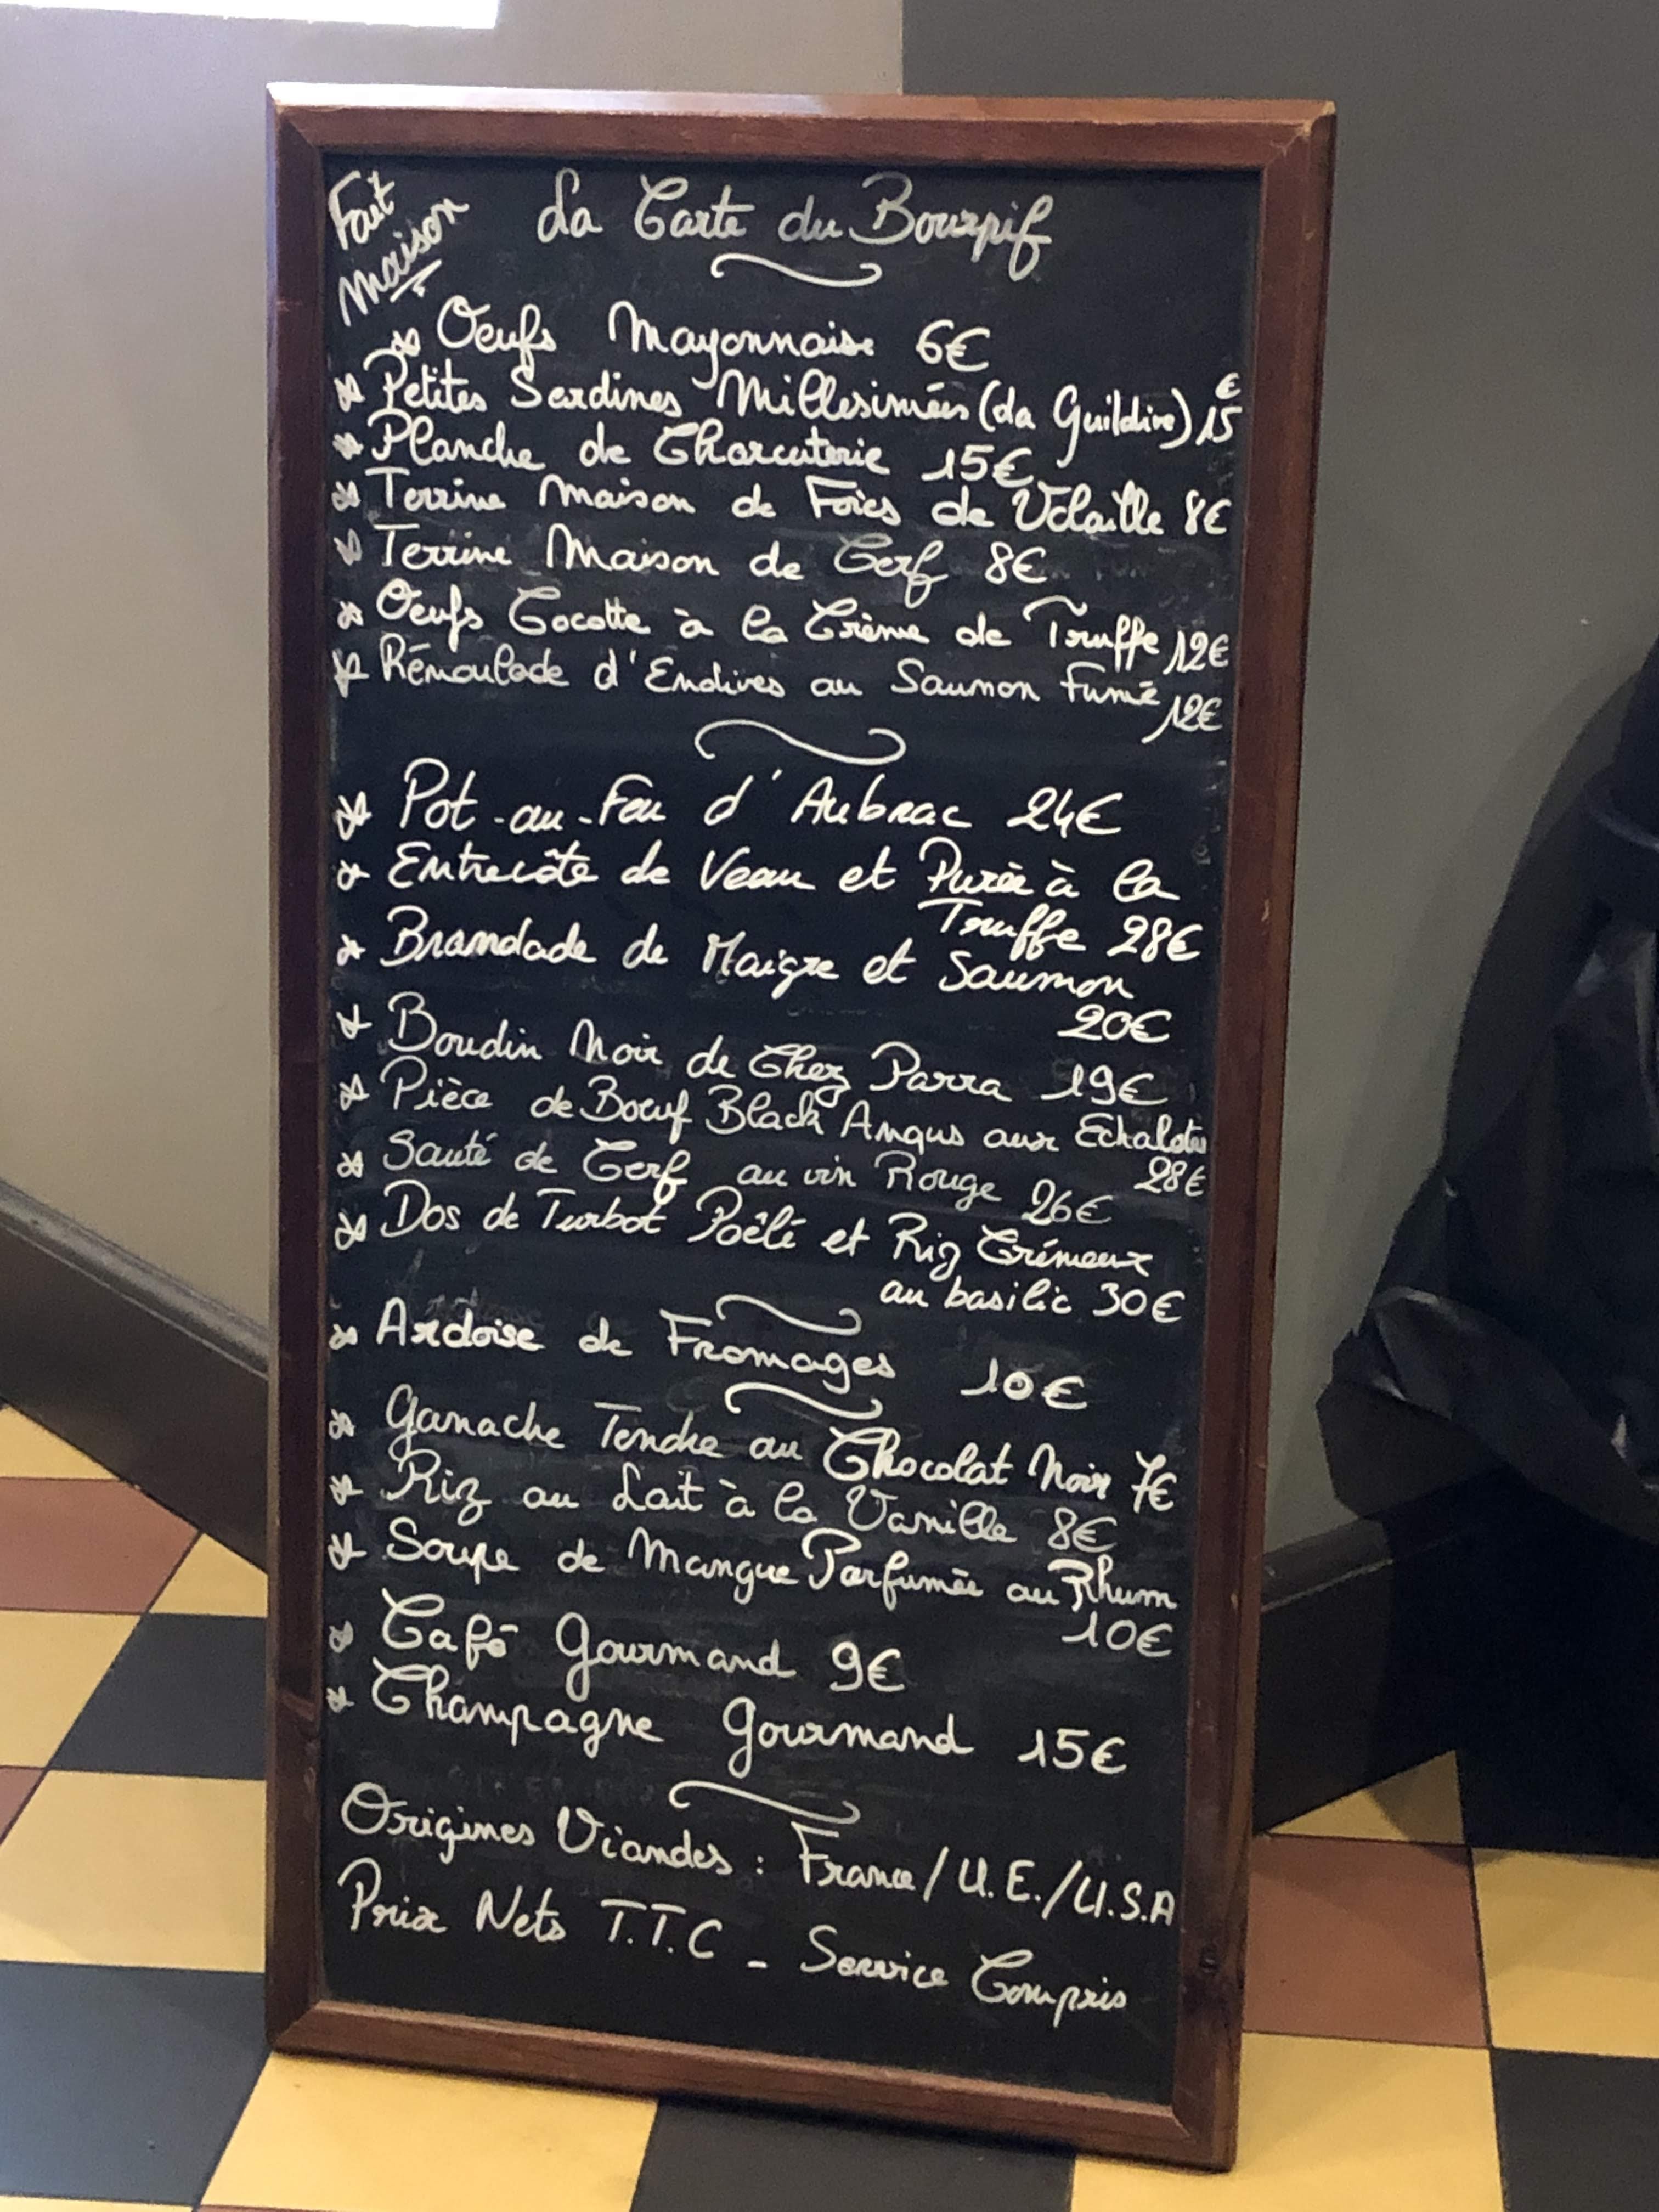 Fait
Maison
La Carte du Bourpif
Oeufs Mayonnaise 6€
Petites Sardines Millesimées (La Guildive) 15€
Planche de Charcuterie 15€
Terrine Maison de Foies de Volaille 8€
Terrine Maison de Cerf 8€
Oeufs Cocotte à la Crème de Truffe 12€
Rémoulade d'Endives au Saumon Fumé
12€
Pot-au-Feu d'Aubrac 24€
Entrecôte de Veau et Purée à la
Truffe 28€
Brandade de Maigre et Saumon
20€
Boudin Noir de Chez Parra 19€
Pièce de Boeuf Black Angus aux Echalotes
28€
Sauté de Cerf au vin Rouge 26€
Dos de Turbot Poêlé et Riz Crémeux
au basilic 30€
Ardoise de Fromages 10€
Ganache Tendre au Chocolat Noir 7€
Riz au Lait à la Vanille 8€
Soupe de Mangue Parfumée au Rhum
10€
Café Gourmand 9€
Champagne Gourmand 15€
Origines Viandes : France/U.E./U.S.A
Prix Nets T.T.C - Service Compris